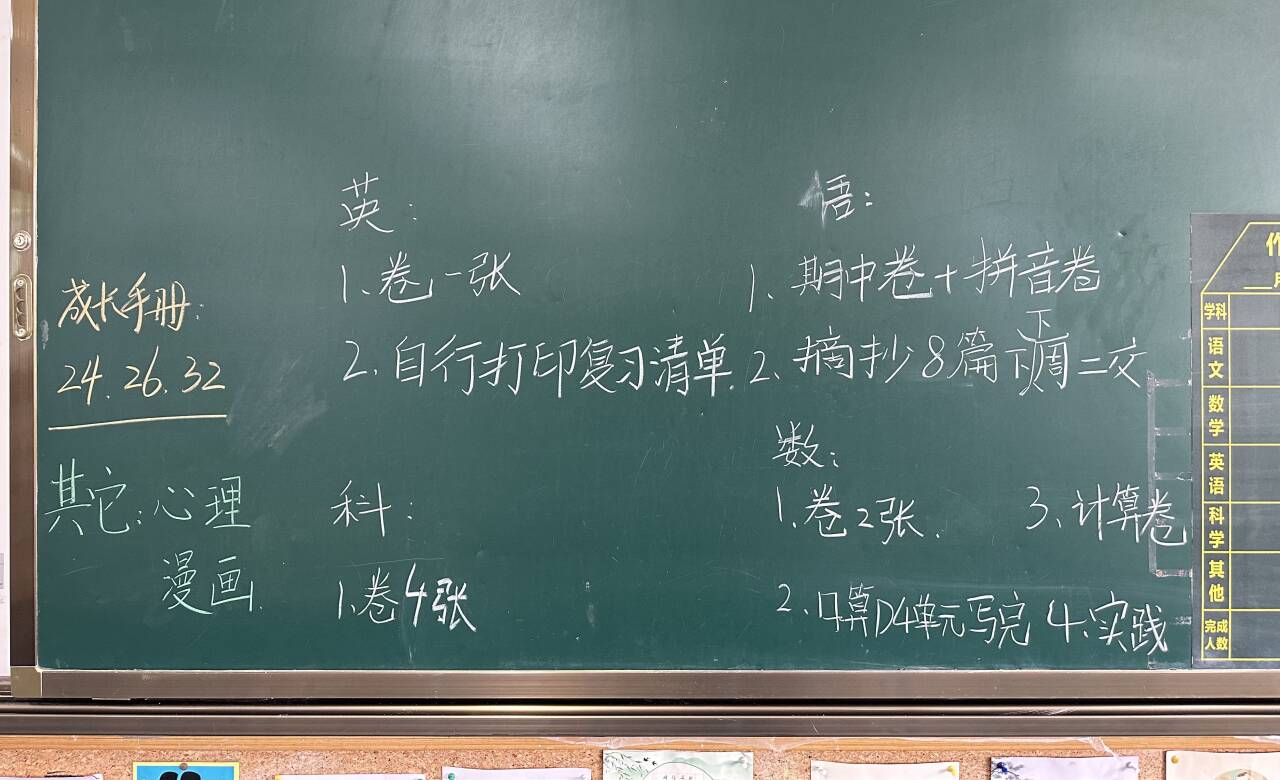 成长手册:
24.26.32
其它:心理
漫画.
英:
1.卷一张
2.自行打印复习清单.
科:
1.卷4张
语:
1.期中卷+拼音卷
2.摘抄8篇下下周二交
数:
1.卷2张.
2.口算D4单元写完
3.计算卷
4.实践
作
月
学科
语文
数学
英语
科学
其他
完成人数